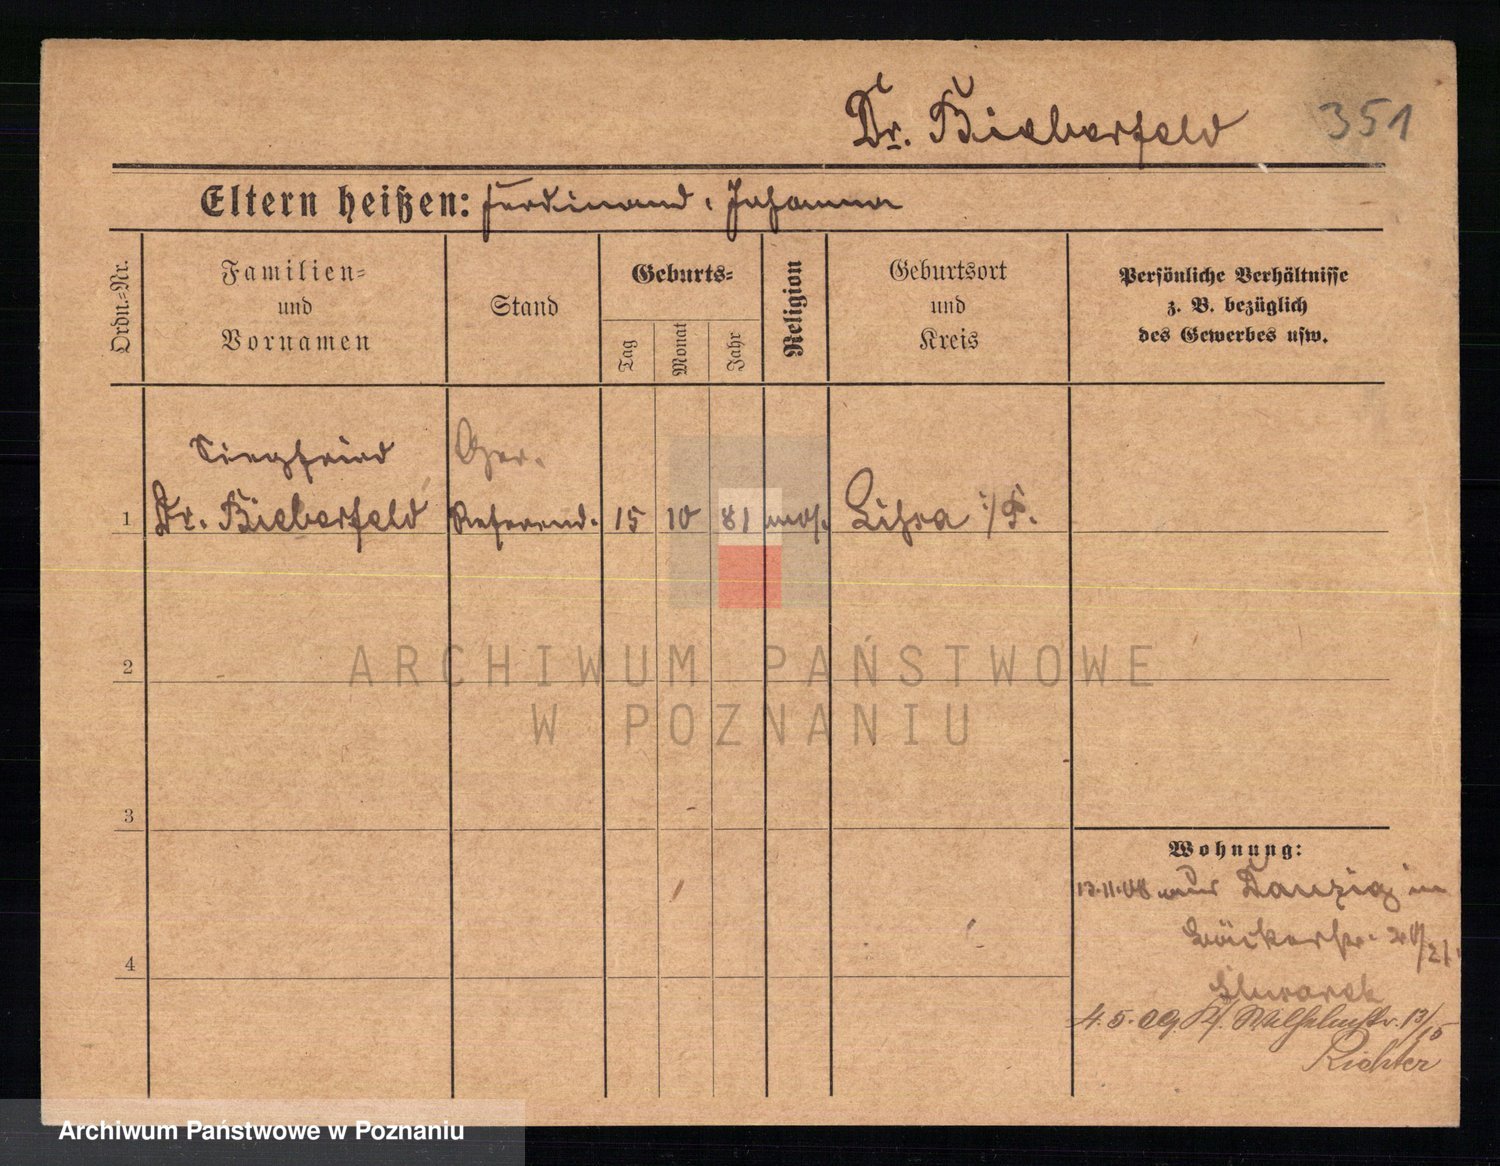 Dr. Bieberfeld 351
Eltern heißen: Ferdinand, Johanna
Ordn.-Nr.
Familien-
und
Vornamen
Stand
Geburts-
Tag
Monat
Jahr
Religion
Geburtsort
und
Kreis
Persönliche Verhältnisse
z. B. bezüglich
des Gewerbes usw.
Siegfried Ger.
1 Dr. Bieberfeld Referend. 15 10 81 mos. Lissa i/P.
2
ARCHIWUM PAŃSTWOWE
W POZNANIU
3
Wohnung:
13.11.08 aus Danzig in
Bäckerstr.
4
4.5.09 Wilhelmstr. 13/15
Richter
Archiwum Państwowe w Poznaniu